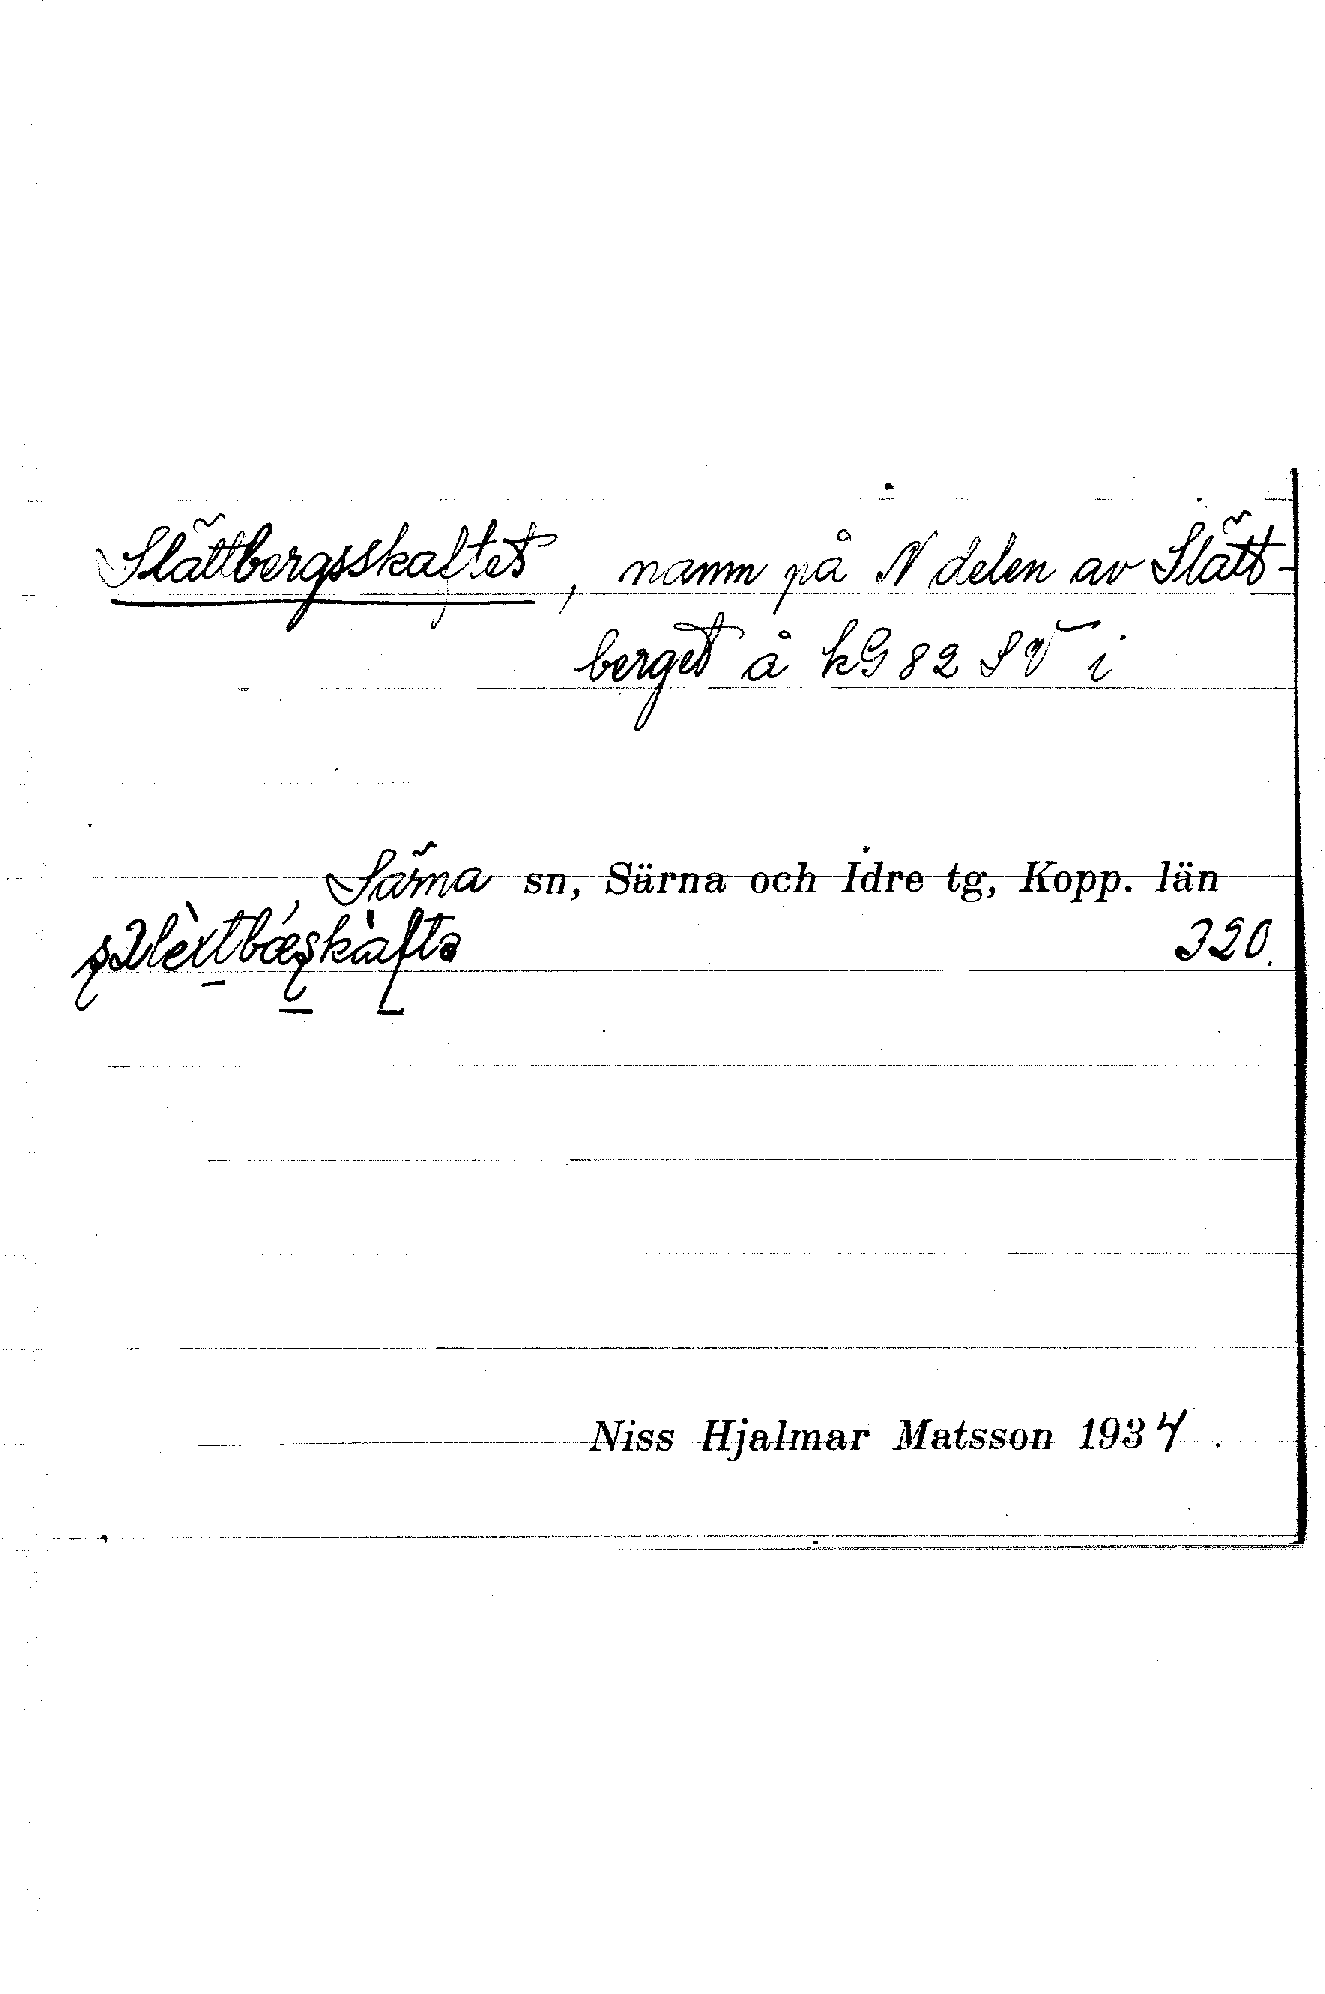 Slättbergsskaftet, namn på N delen av Slätt-
berget å kG 82 SV i
Särna sn, Särna och Idre tg, Kopp. län
320.
Niss Hjalmar Matsson 1934.